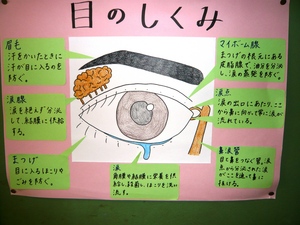 目のしくみ
眉毛
汗をかいたときに
汗が目に入るのを
防ぐ。
涙腺
涙を絶えず分泌
して、結膜に供給
する。
まつげ
目に入るほこりや
ごみを防ぐ。
涙
角膜や結膜に栄養を供
給し、殺菌し、ほこりを洗い流
す。
マイボーム腺
まつげの根元にある
皮脂腺で、油分を分泌
し、涙の蒸発を防ぐ。
涙点
涙の出口にあたり、ここ
から鼻に向って常に涙が
流れている。
鼻涙管
目と鼻をつなぐ管。涙
点から分泌された涙
がここを通って鼻に
抜ける。